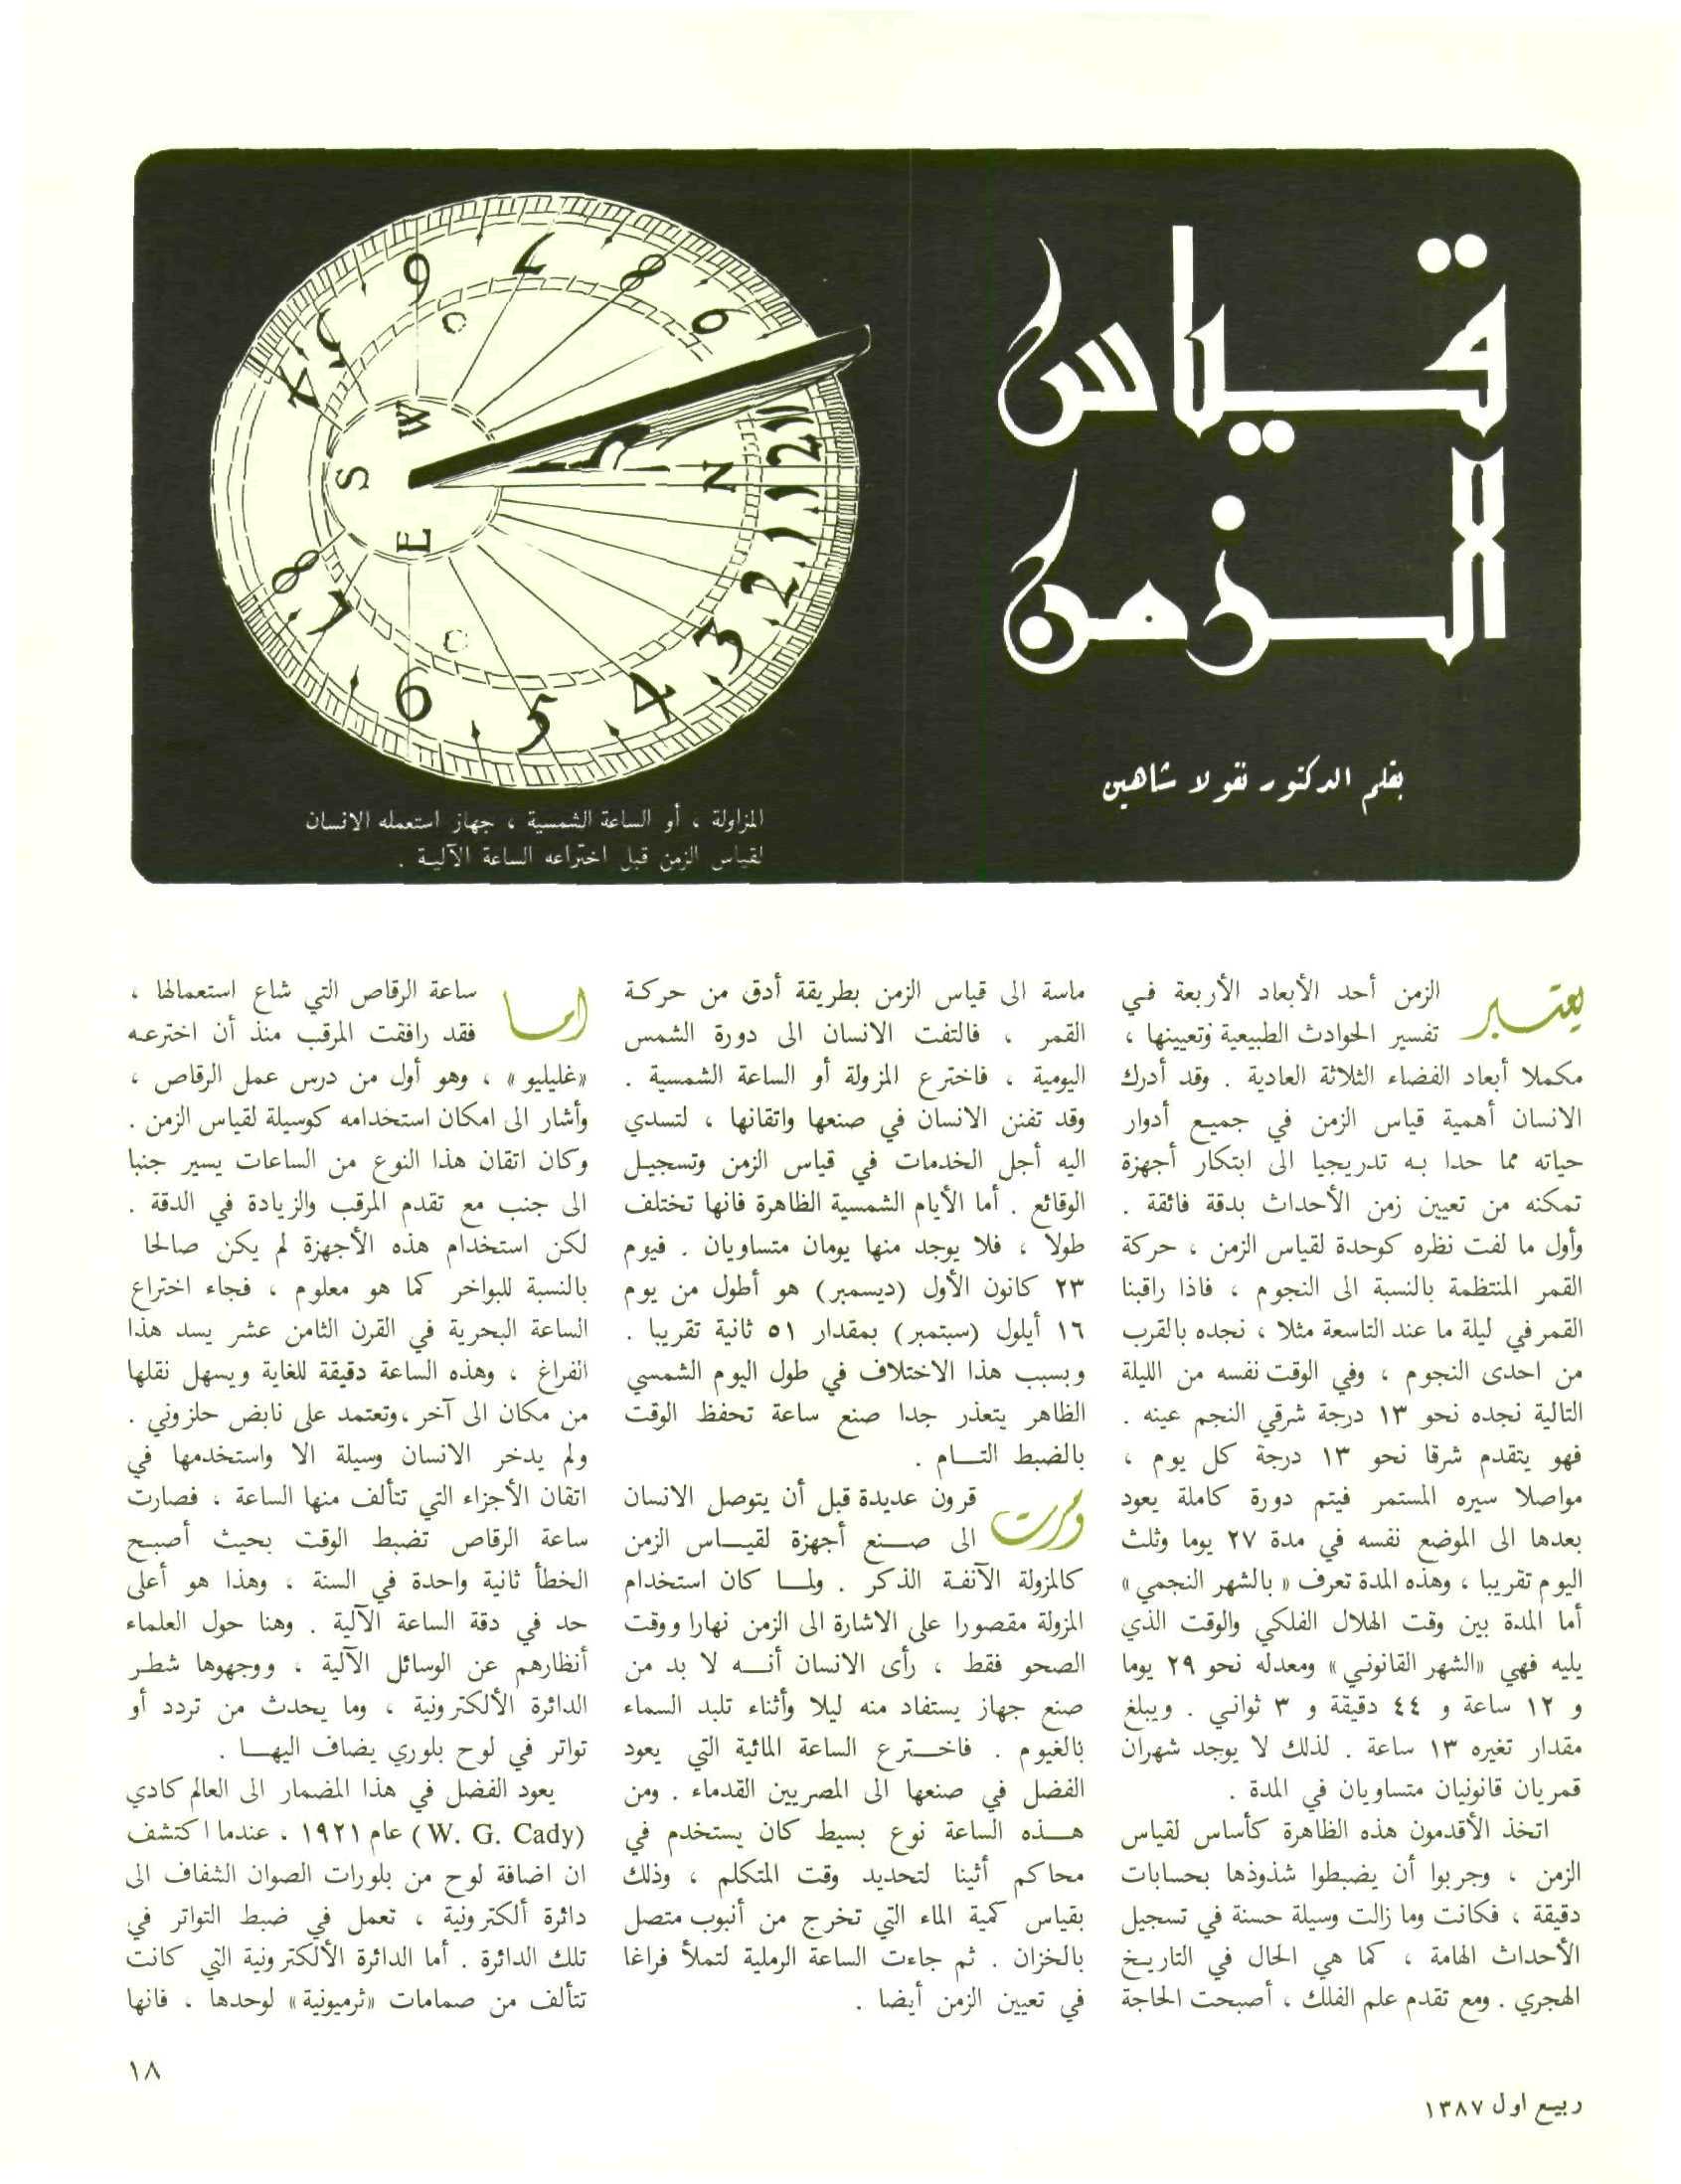 قياس
الزمن
بقلم الدكتور نقولا شاهين
9
8
7
6
5
4
W
S
E
N
12
1
1
2
3
4
5
6
7
8
المزاولة ، أو الساعة الشمسية ، جهاز استعمله الانسان
لقياس الزمن قبل اختراعه الساعة الآلية .
يعتبر الزمن أحد الأبعاد الأربعة في
تفسير الحوادث الطبيعية وتعيينها ،
مكملا أبعاد الفضاء الثلاثة العادية . وقد أدرك
الانسان أهمية قياس الزمن في جميع أدوار
حياته مما حدا به تدريجيا الى ابتكار أجهزة
تمكنه من تعيين زمن الأحداث بدقة فائقة .
وأول ما لفت نظره كوحدة لقياس الزمن ، حركة
القمر المنتظمة بالنسبة الى النجوم ، فاذا راقبنا
القمر في ليلة ما عند التاسعة مثلا ، نجده بالقرب
من احدى النجوم ، وفي الوقت نفسه من الليلة
التالية نجده نحو ١٣ درجة شرقي النجم عينه .
فهو يتقدم شرقا نحو ١٣ درجة كل يوم ،
مواصلا سيره المستمر فيتم دورة كاملة يعود
بعدها الى الموضع نفسه في مدة ٢٧ يوما وثلث
اليوم تقريبا ، وهذه المدة تعرف « بالشهر النجمي »
أما المدة بين وقت الهلال الفلكي والوقت الذي
يليه فهي «الشهر القانوني» ومعدله نحو ٢٩ يوما
و ١٢ ساعة و ٤٤ دقيقة و ٣ ثواني . ويبلغ
مقدار تغيره ١٣ ساعة . لذلك لا يوجد شهران
قمريان قانونيان متساويان في المدة .
اتخذ الأقدمون هذه الظاهرة كأساس لقياس
الزمن ، وجربوا أن يضبطوا شذوذها بحسابات
دقيقة ، فكانت وما زالت وسيلة حسنة في تسجيل
الأحداث الهامة ، كما هي الحال في التاريخ
الهجري . ومع تقدم علم الفلك ، أصبحت الحاجة
ماسة الى قياس الزمن بطريقة أدق من حركة
القمر ، فالتفت الانسان الى دورة الشمس
اليومية ، فاخترع المزولة أو الساعة الشمسية .
وقد تفنن الانسان في صنعها واتقانها ، لتسدي
اليه أجل الخدمات في قياس الزمن وتسجيل
الوقائع . أما الأيام الشمسية الظاهرة فانها تختلف
طولا ، فلا يوجد منها يومان متساويان . فيوم
٢٣ كانون الأول (ديسمبر) هو أطول من يوم
١٦ أيلول (سبتمبر) بمقدار ٥١ ثانية تقريبا .
وبسبب هذا الاختلاف في طول اليوم الشمسي
الظاهر يتعذر جدا صنع ساعة تحفظ الوقت
بالضبط التـــام .
ومرت قرون عديدة قبل أن يتوصل الانسان
الى صـــنع أجهزة لقيـــاس الزمن
كالمزولة الآنفة الذكر . ولمـــا كان استخدام
المزولة مقصورا على الاشارة الى الزمن نهارا ووقت
الصحو فقط ، رأى الانسان أنـــه لا بد من
صنع جهاز يستفاد منه ليلا وأثناء تلبد السماء
بالغيوم . فاخـــترع الساعة المائية التي يعود
الفضل في صنعها الى المصريين القدماء . ومن
هـــذه الساعة نوع بسيط كان يستخدم في
محاكم أثينا لتحديد وقت المتكلم ، وذلك
بقياس كمية الماء التي تخرج من أنبوب متصل
بالخزان . ثم جاءت الساعة الرملية لتملأ فراغا
في تعيين الزمن أيضا .
اما ساعة الرقاص التي شاع استعمالها ،
فقد رافقت المرقب منذ أن اخترعه
«غليليو» ، وهو أول من درس عمل الرقاص ،
وأشار الى امكان استخدامه كوسيلة لقياس الزمن .
وكان اتقان هذا النوع من الساعات يسير جنبا
الى جنب مع تقدم المرقب والزيادة في الدقة .
لكن استخدام هذه الأجهزة لم يكن صالحا
بالنسبة للبواخر كما هو معلوم ، فجاء اختراع
الساعة البحرية في القرن الثامن عشر يسد هذا
الفراغ ، وهذه الساعة دقيقة للغاية ويسهل نقلها
من مكان الى آخر ، وتعتمد على نابض حلزوني .
ولم يدخر الانسان وسيلة الا واستخدمها في
اتقان الأجزاء التي تتألف منها الساعة ، فصارت
ساعة الرقاص تضبط الوقت بحيث أصبح
الخطأ ثانية واحدة في السنة ، وهذا هو أعلى
حد في دقة الساعة الآلية . وهنا حول العلماء
أنظارهم عن الوسائل الآلية ، ووجهوها شطر
الدائرة الألكترونية ، وما يحدث من تردد أو
تواتر في لوح بلوري يضاف اليهـــا .
يعود الفضل في هذا المضمار الى العالم كادي
(W. G. Cady) عام ١٩٢١ ، عندما اكتشف
ان اضافة لوح من بلورات الصوان الشفاف الى
دائرة ألكترونية ، تعمل في ضبط التواتر في
تلك الدائرة . أما الدائرة الألكترونية التي كانت
تتألف من صمامات «ثرميونية» لوحدها ، فانها
١٨
ربيع اول ١٣٨٧